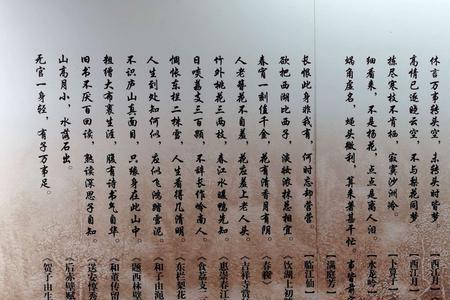 休言万事转头空，未转头时皆梦《西江月》
高情已逐晓云空，不与梨花同梦《西江月》
拣尽寒枝不肯栖，寂寞沙洲冷《卜算子》
细看来，不是杨花，点点是离人泪《水龙吟》
蜗角虚名，蝇头微利，算来着甚干忙《满庭芳》
长恨此身非我有，何时忘却营营《临江仙》
欲把西湖比西子，淡妆浓抹总相宜《饮湖上初
春宵一刻值千金，花有清香月有阴《春宵》
人老簪花不自羞，花应羞上老人头《吉祥寺赏
竹外桃花三两枝，春江水暖鸭先知《惠崇春江
日啖荔支三百颗，不辞长作岭南人《食荔支二
惆怅东栏二株雪，人生看得几清明《东栏梨花
人生到处知何似，应似飞鸿踏雪泥《和子由渑
不识庐山真面目，只缘身在此山中《题西林壁
粗缯大布裹生涯，腹有诗书气自华《和董传留
旧书不厌百回读，熟读深思子自知《送安惇秀
山高月小，水落石出《后赤壁赋
无官一身轻，有子万事足。《贺子由生